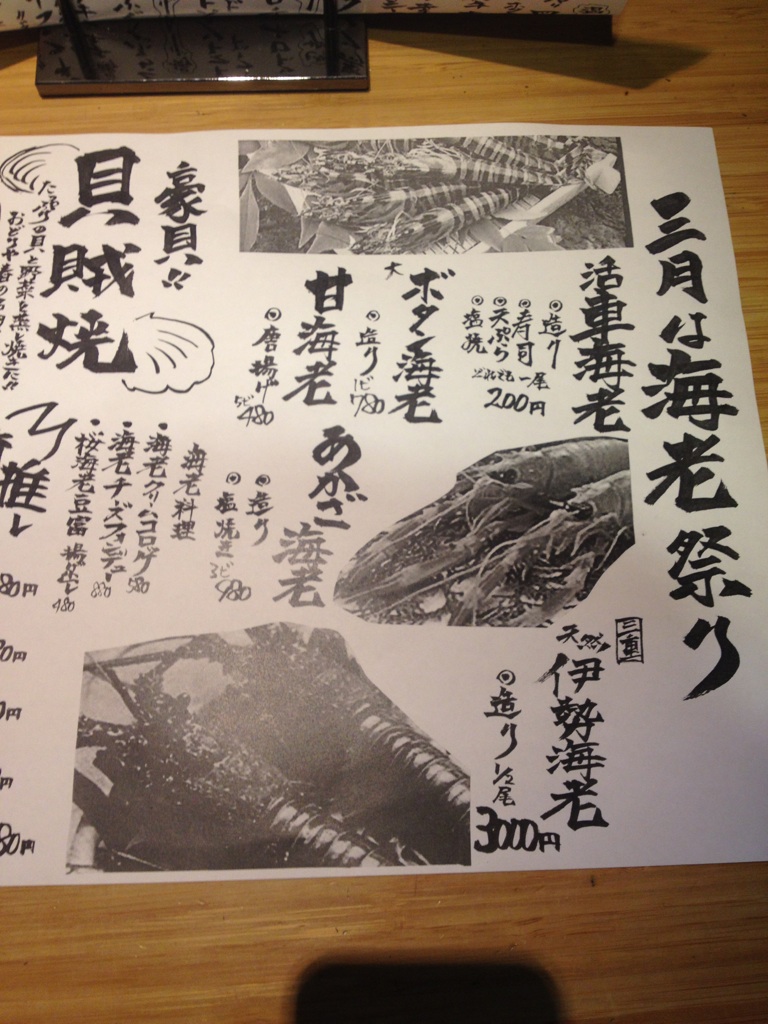 三月は海老祭り
活車海老
◎造り
◎寿司
◎天ぷら
◎塩焼
どれでも 一尾
200円
大ボタン海老
◎造り
1ピ 780
甘海老
◎唐揚げ
5ピ 480
あかざ海老
◎造り
◎塩焼き
3ピ 980
三重
天然
伊勢海老
◎造り 1/2尾
3000円
海老料理
・海老クリームコロッケ 580
・海老チーズフォンデュー 880
・桜海老豆富 揚出し 480
豪貝!!
貝賊焼
たっぷりの貝と野菜を蒸し焼きた!!
推し
80円
0円
0円
円
80円